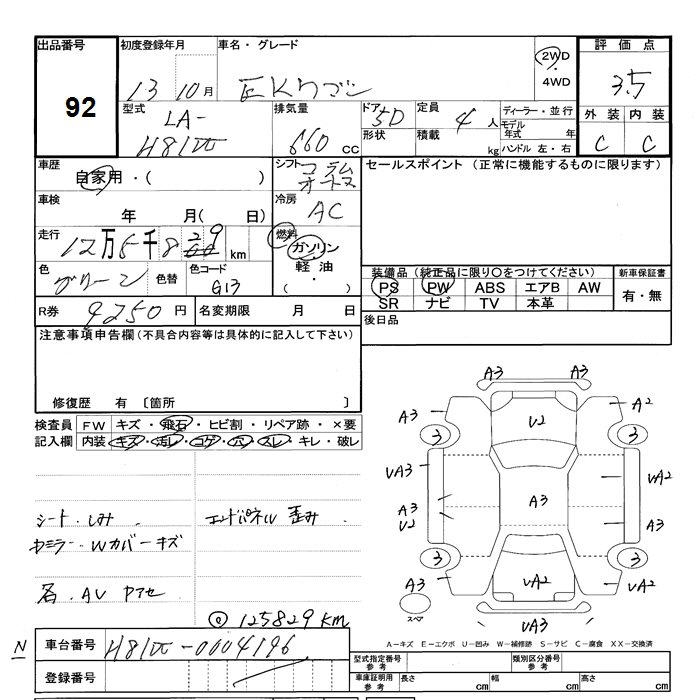 出品番号 初度登録年月 車名・グレード 評価点
92 13 10月 EKワゴン 2WD 4WD 3.5
型式 排気量 ドア 定員 ディーラー・並行 外装 内装
LA- H81W 660cc 5D 形状 4人 積載 kg モデル年式 年 ハンドル 左・右 C C
車歴 自家用・( ) シフト コラム オートマ セールスポイント (正常に機能するものに限ります)
車検 年 月( 日) 冷房 AC
走行 12万5千829km 燃料 ガソリン 軽油・( )
色 グリーン 色替 色コード G13
装備品(純正品に限り〇をつけてください) 新車保証書
PS PW ABS エアB AW 有・無
SR ナビ TV 本革
R券 9250円 名変期限 月 日 後日品
注意事項申告欄(不具合内容等は具体的に記入して下さい)
修復歴 有〔箇所 〕
検査員 FW キズ・飛石・ヒビ割・リペア跡・×要
記入欄 内装 キズ・汚レ・コゲ・穴・スレ・キレ・破レ
シート・しみ エンドパネル 歪み
Wカバーキズ
AV
125829KM
N 車台番号 H81W-0004196
登録番号
A3
A3 A2
U2
3 3
UA3 UA2
A3 A3 A3
U2
3 3
A3 UA2 UA2
スペア UA3
A-キズ E-エクボ U-凹み W-補修跡 S-サビ C-腐食 XX-交換済
型式指定番号 参考 類別区分番号 参考
車庫証明用 参考 長さ cm 幅 cm 高さ cm